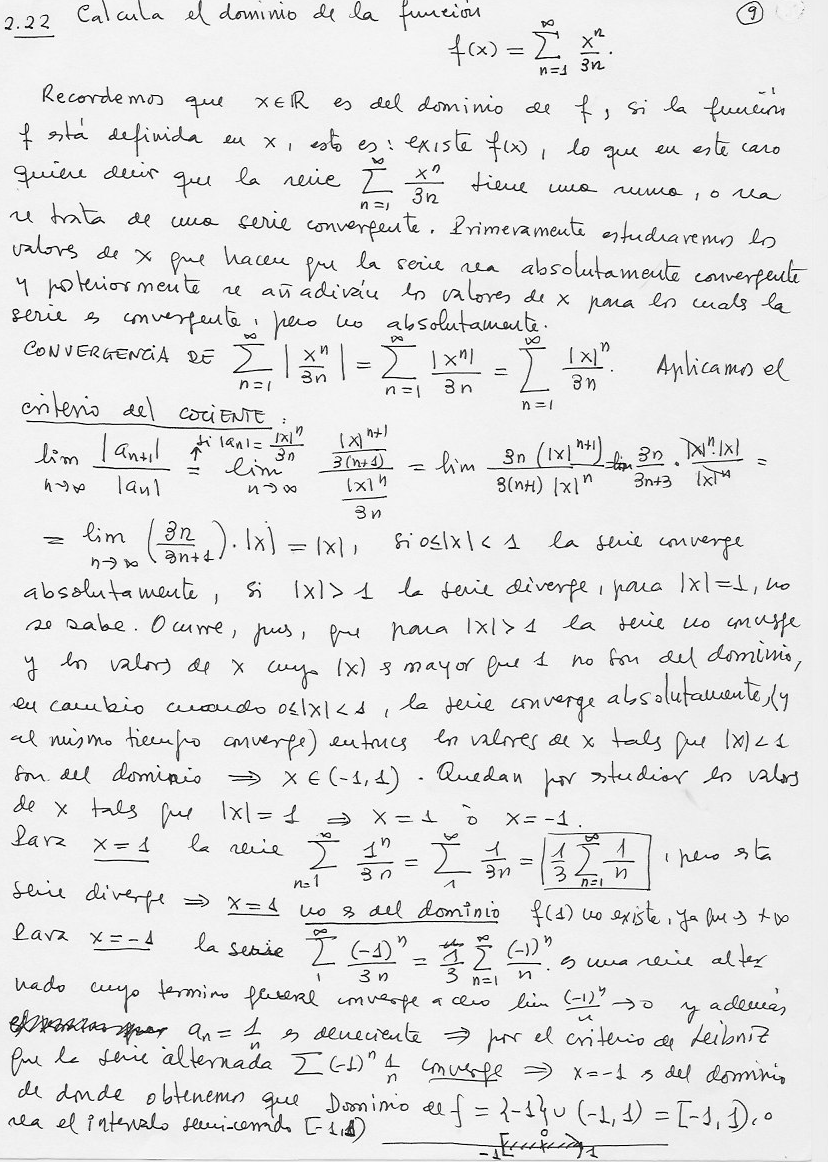 2.22 Calcula el dominio de la función ⑨
f(x) = ∑_{n=1}^{∞} x^n/3n.
Recordemos que x∈ℝ es del dominio de f, si la función
f está definida en x, esto es: existe f(x), lo que en este caso
quiere decir que la serie ∑_{n=1}^{∞} x^n/3n tiene una suma, o sea
se trata de una serie convergente. Primeramente estudiaremos los
valores de x que hacen que la serie sea absolutamente convergente
y posteriormente se añadirán los valores de x para los cuals la
serie es convergente, pero no absolutamente.
CONVERGENCIA DE ∑_{n=1}^{∞} |x^n/3n| = ∑_{n=1}^{∞} |x^n|/3n = ∑_{n=1}^{∞} |x|^n/3n. Aplicamos el
criterio del COCIENTE:
lim_{n→∞} |a_{n+1}|/|a_n| = ↑ si |a_n| = |x|^n/3n lim_{n→∞} (|x|^{n+1}/3(n+1))/(|x|^n/3n) = lim 3n(|x|^{n+1})/3(n+1)|x|^n = lim 3n/3n+3 · |x|^n·|x|/|x|^n =
= lim_{n→∞} (3n/3n+1)·|x| = |x|, si 0≤|x|<1 la serie converge
absolutamente, si |x|>1 la serie diverge, para |x|=1, no
se sabe. Ocurre, pues, que para |x|>1 la serie no converge
y los valors de x cuyo |x| es mayor que 1 no son del dominio,
en cambio cuando 0≤|x|<1, la serie converge absolutamente, (y
al mismo tiempo converge) entonces los valores de x tals que |x|<1
son del dominio ⇒ x∈(-1,1). Quedan por estudiar los valors
de x tals que |x|=1 ⇒ x=1 ó x=-1.
Para x=1 la serie ∑_{n=1}^{∞} 1^n/3n = ∑_{1}^{∞} 1/3n = 1/3 ∑_{n=1}^{∞} 1/n, pero esta
serie diverge ⇒ x=1 no es del dominio f(1) no existe, ya que es +∞
Para x=-1 la serie ∑_{1}^{∞} (-1)^n/3n = 1/3 ∑_{n=1}^{∞} (-1)^n/n. es una serie alter
nado cuyo termino general converge a cero lim (-1)^n/n → 0 y además
a_n = 1/n es decreciente ⇒ por el criterio de Leibniz
que la serie alternada ∑(-1)^n 1/n converge ⇒ x=-1 es del dominio
de donde obtenemos que Dominio de f = {-1}∪(-1,1) = [-1,1), o
sea el intervalo semi-cerrado [-1,1)
-1 0 1